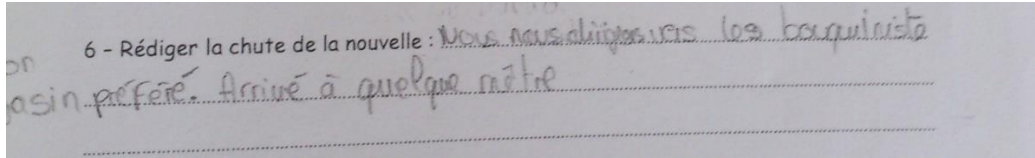 6 - Rédiger la chute de la nouvelle : Nous nous dirigons vers les bouquiniste
on
asin préféré. Arrivé à quelque mètre